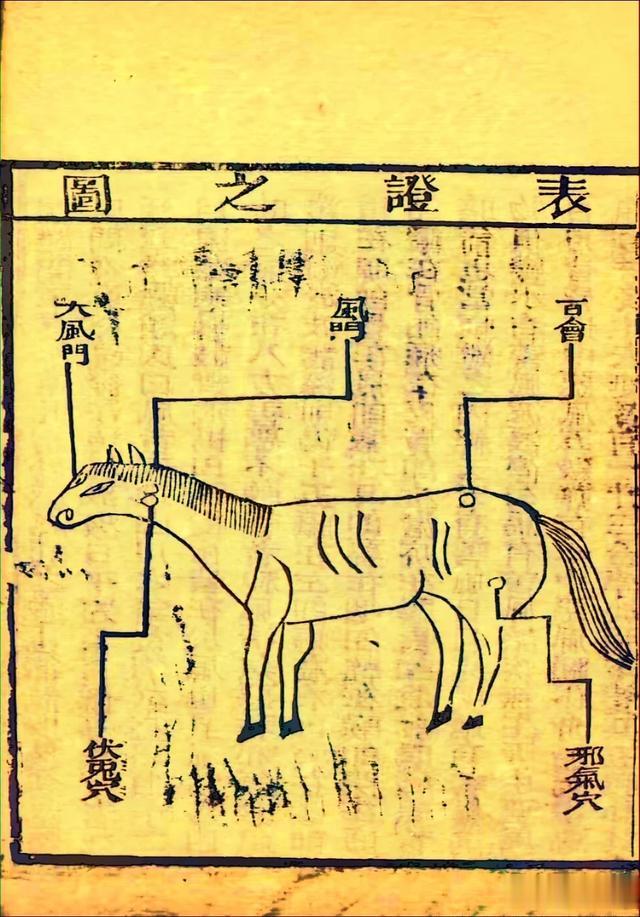 表證之圖
百會
風門
大風門
邪氣穴
伏兎穴